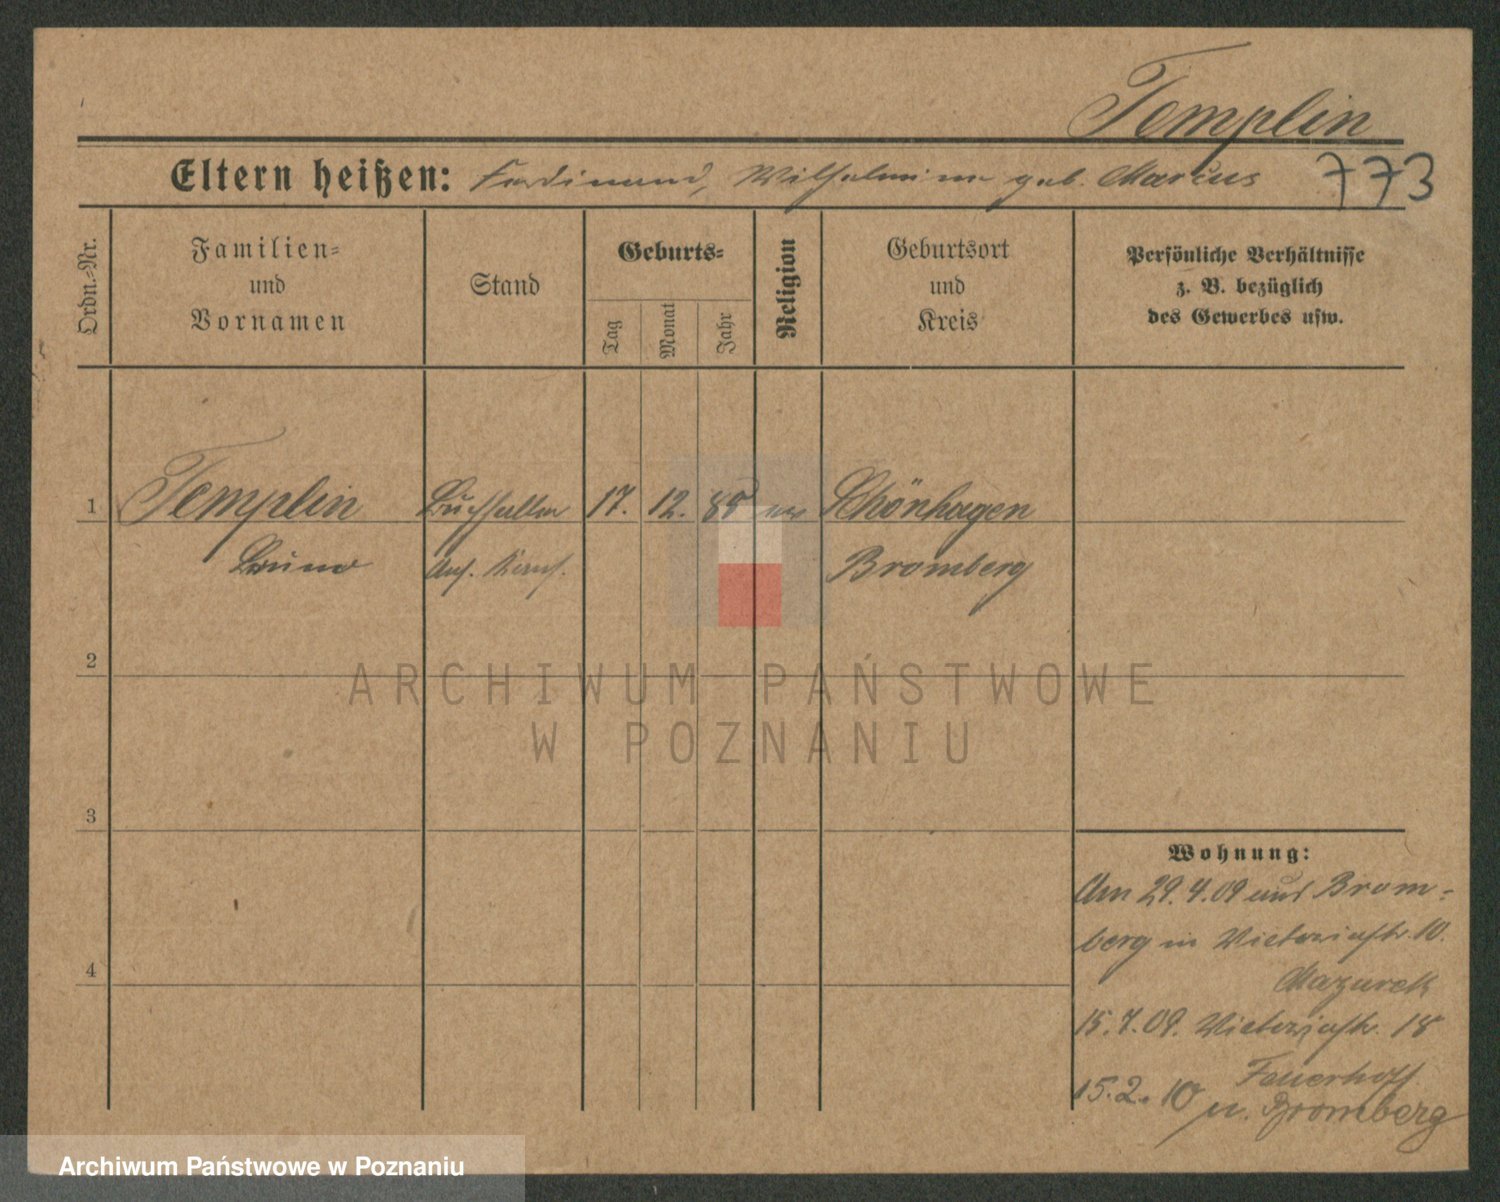 Templin
Eltern heißen: Ferdinand, Wilhelmine geb. Marcus 773
Ordn.-Nr.
Familien-
und
Vornamen
Stand
Geburts-
Tag
Monat
Jahr
Religion
Geburtsort
und
Kreis
Persönliche Verhältnisse
z. B. bezüglich
des Gewerbes usw.
1 Templin Buchhalter 17. 12. Schönhagen
Bruno Bromberg
2
3
4
Wohnung:
Am 29.4.09 aus Brom-
berg in Victoriastr. 10.
Mazurek
15.7.09. Victoriastr. 18
Feuerhoff
15.2.10 n. Bromberg
ARCHIWUM PAŃSTWOWE
W POZNANIU
Archiwum Państwowe w Poznaniu